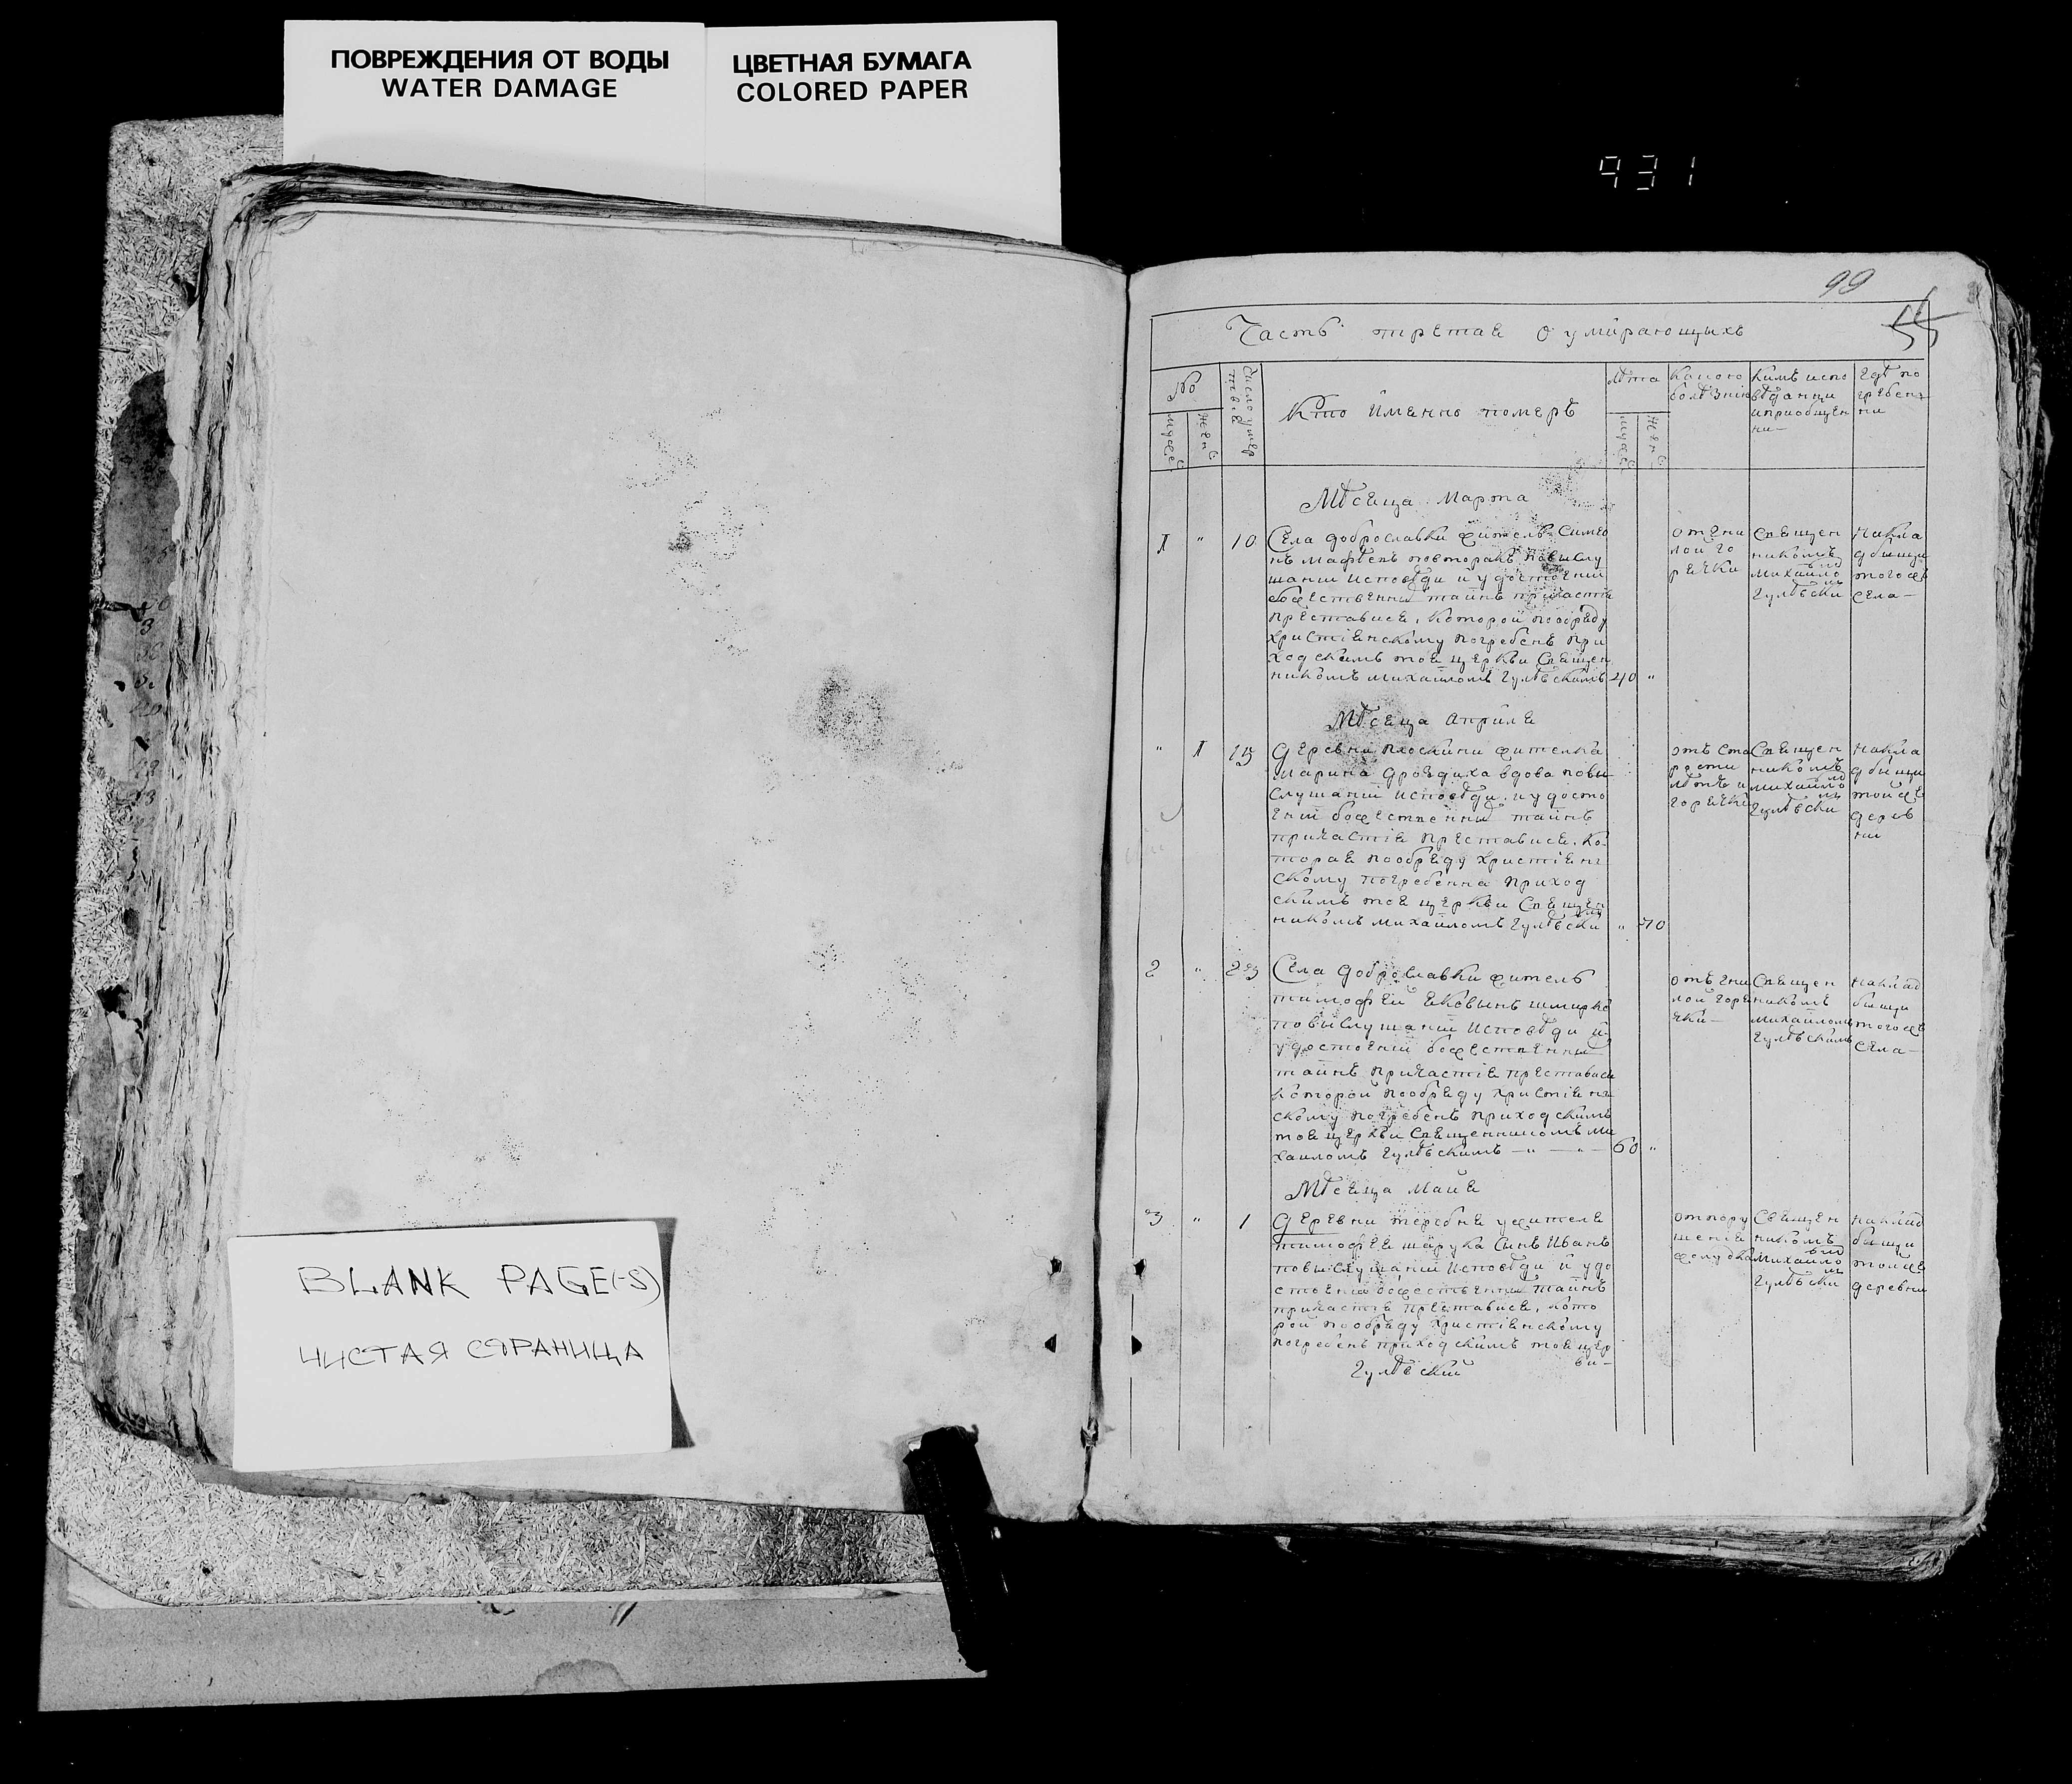 ПОВРЕЖДЕНИЯ ОТ ВОДЫ
WATER DAMAGE
ЦВЕТНАЯ БУМАГА
COLORED PAPER
931
99
55
Часть третая о умирающыхъ
№
мужес
женс
Число умер
Кто именно померъ
Лѣта
мужес
женс
Какою
болѣзнію
Кимъ испо
вѣданы
и приобщен
ны
Гдѣ по
гребен
ны
Мѣсяца Марта
1 " 10
Села Доброславки житель Симео
нъ
по выслу
шаніи исповѣди и удостоеніи
божественны тайнъ причастія
преставися, которой по обряду
христіянскому погребенъ при
ходскимъ тоя церкви Священ
никомъ Михаиломъ Гулѣвскимъ
40 "
от гни
лой го
рячки
Священ
никомъ
Михаило
Гулѣвски
На кла
дбищи
того жъ
села
Мѣсяца Априля
" 1 13
Деревни Плоскини жителка
Марина Дроздиха вдова по вы
слушаніи исповѣди и удосто
еніи божественны тайнъ
причастія преставися, ко
торая по обряду христіян
скому погребенна приход
скимъ тоя церкви Священ
никомъ Михаиломъ Гулѣвски
" 70
отъ ста
рости
лѣтъ и
горячки
Священ
никомъ
Михаило
Гулѣвски
на кла
дбищи
той жъ
дерев
ни
2 " 23
Села Доброславки житель
Тимофей Яковынъ
по выслушаніи исповѣди и
удостоеніи божественны
тайнъ причастія преставися
которой по обряду христіян
скому погребенъ приходскимъ
тоя церкви Священникомъ Ми
хаиломъ Гулѣвскимъ — " — " —
60 "
отъ гни
лой горя
чки
Священ
никомъ
Михаиломъ
Гулѣвскимъ
на клад
бищи
того жъ
села
Мѣсяца Маия
3 " 1
Деревни жителя
Тимофея сынъ Иванъ
по выслушаніи исповѣди и удо
стоеніи божественны тайнъ
причастія преставися, кото
рой по обряду христіянскому
погребенъ приходскимъ тоя цер
кви
Гулѣвский
от пору
шенія
желудка
Священ
никомъ
Михаило
Гулѣвски
на клад
бищи
той жъ
деревни
BLANK PAGE(-S)
ЧИСТАЯ СТРАНИЦА